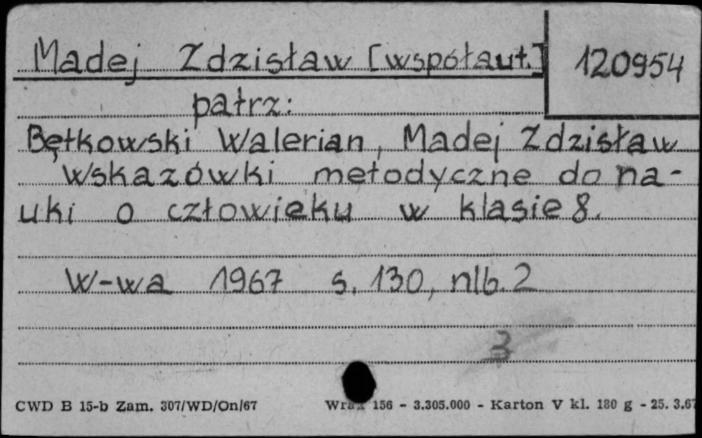 Madej Zdzisław [współaut.] 120954
patrz:
Bętkowski Walerian, Madej Zdzisław
Wskazówki metodyczne do na-
uki o człowieku w klasie 8.
W-wa 1967 s. 130, nlb. 2
3
CWD B 15-b Zam. 307/WD/On/67 156 - 3.305.000 - Karton V kl. 180 g - 25. 3.67